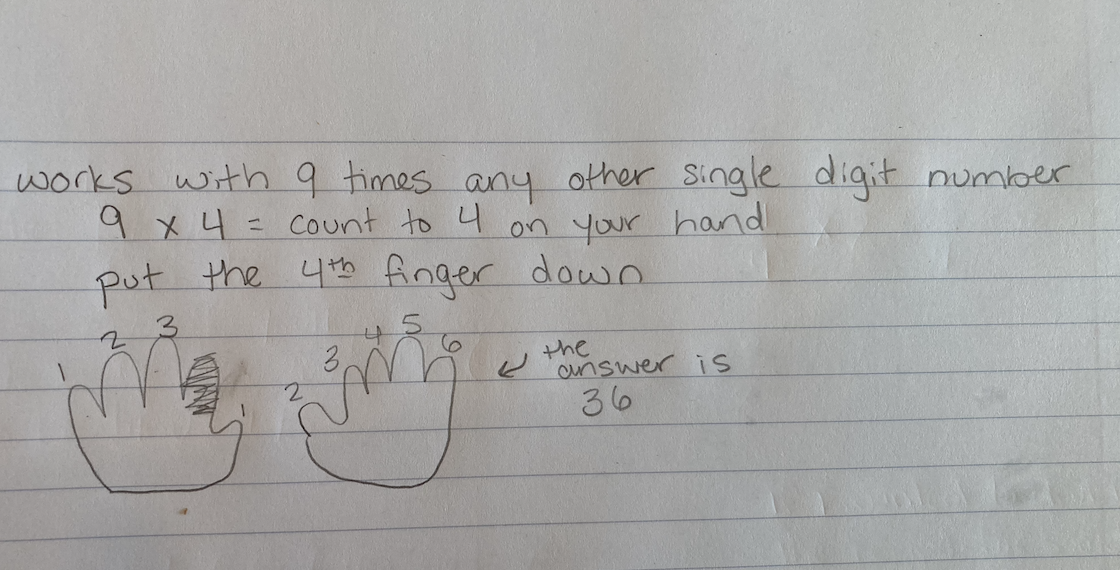 works with 9 times any other single digit number
9 x 4 = count to 4 on your hand
put the 4th finger down
1 2 3 1 2 3 4 5 6 ↙ the answer is
36